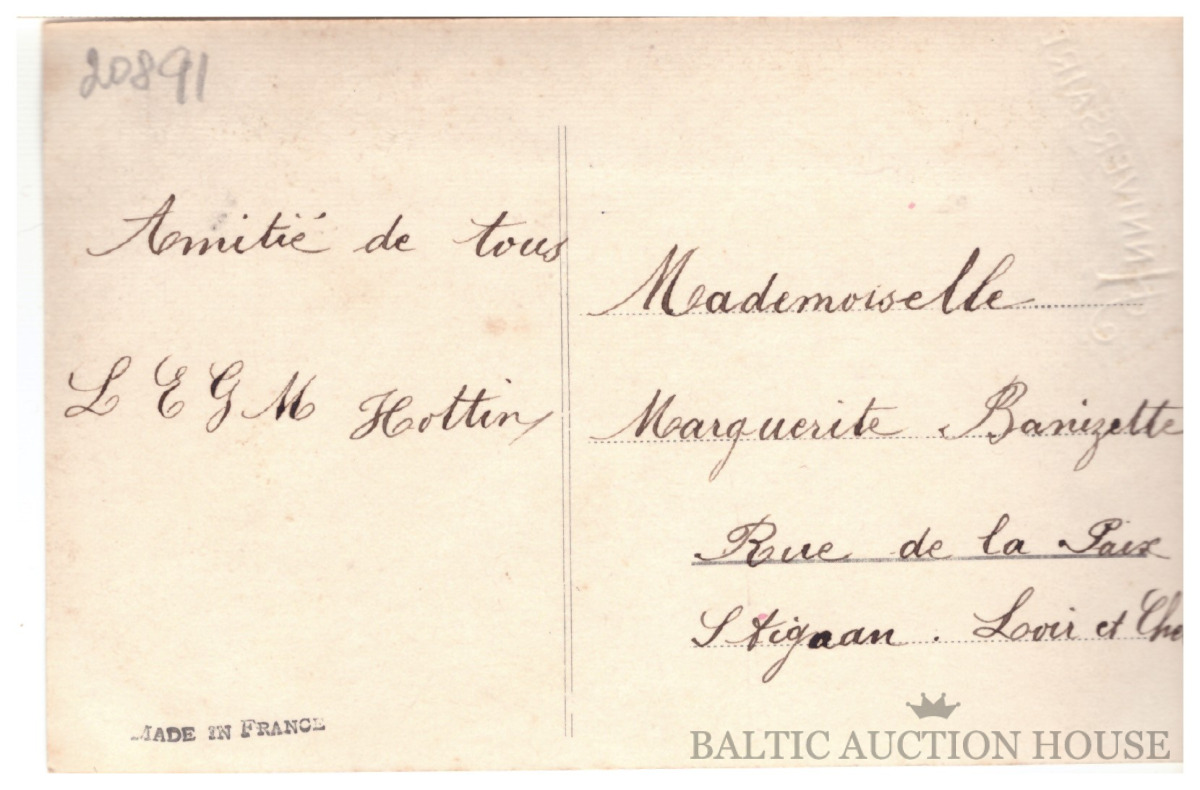 20891
Amitié de tous
L E G M Hottin
MADE IN FRANCE
ANNIVERSAIRE
Mademoiselle
Marguerite Banizette
Rue de la Paix
St Aignan. Loir et Che
BALTIC AUCTION HOUSE